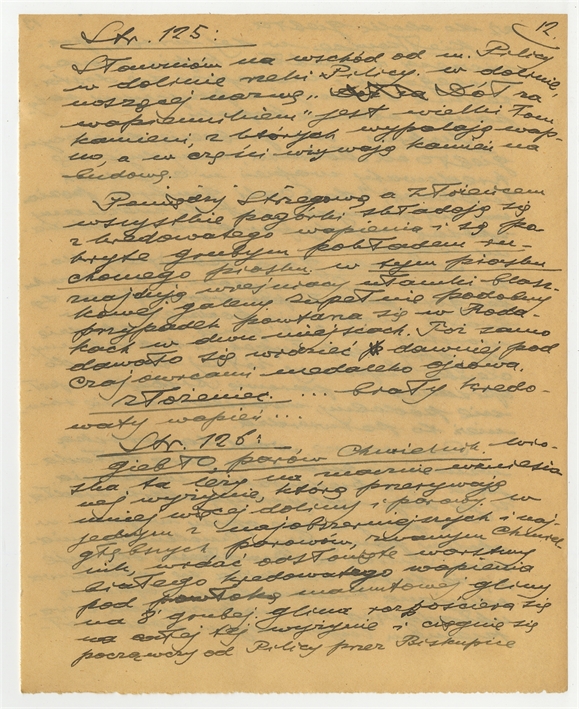 12.
Str. 125:
Sławniów na wschód od m. Pilicy
w dolinie rzeki Pilicy. w dolinie,
noszącej nazwę „Dół za
wapiennikiem" jest wielki łom
kamieni, z których wypalają wap-
no, a w części używają kamień na
budowę.
Pomiędzy Strzegową a Złożeńcem
wszystkie pagórki składają się
z kredowatego wapienia i są po
kryte grubym pokładem ru-
chomego piasku. w tym piasku
znajdują wieśniacy ułamki blasz-
kowej galeny zupełnie podobny
przypadek powtarza się w Roda-
kach w dwu miejscach. Toż samo
dawało się widzieć dawniej pod
Czajowicami niedaleko Ojcowa.
Złożeniec. ... biały kredo-
waty wapień ...
Str. 126:
Giebło, parów Chwietnik. Wio-
ska ta leży na znacznie wzniesio
nej wyżynie, którą przerywają
mniej więcej doliny i parowy. w
jednym z najobszerniejszych i naj-
głębszych parowów, zwanym Chwiet
nik, widać odsłonięte warstwy
białego kredowatego wapienia
pod mamutowej gliny
na 8' grubej glina rozpościera się
na całej tej wyżynie i ciągnie się
począwszy od Pilicy przez Biskupice